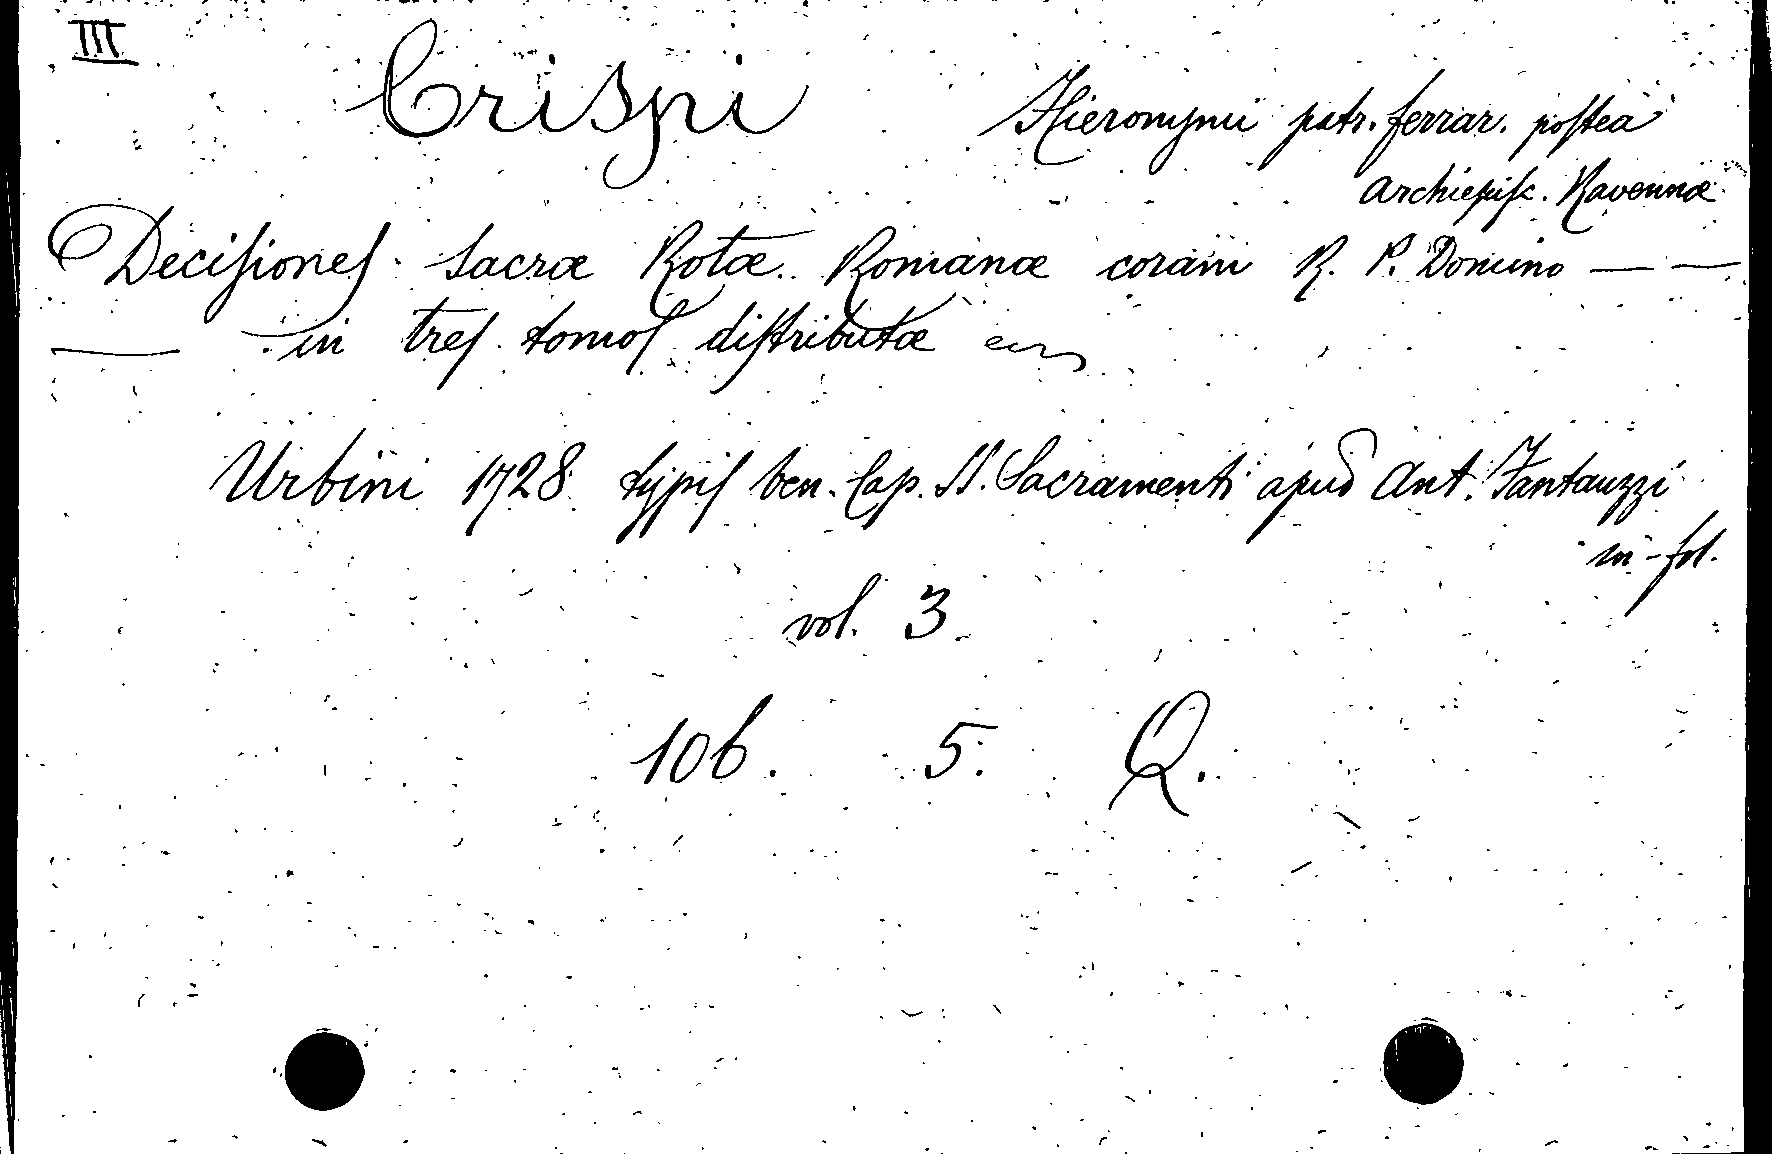 III
Crispi Hieronymi patr. ferrar. poſtea
Archiepiſc. Ravennæ
Deciſioneſ Sacræ Rotæ Romanæ coram R. P. Domino — —
— in treſ tomoſ diſtributæ
Urbini 1728 typiſ Ven. Cap. SS. Sacramenti apud Ant. Fantauzzi
in-fol.
vol. 3
106. 5. Q.